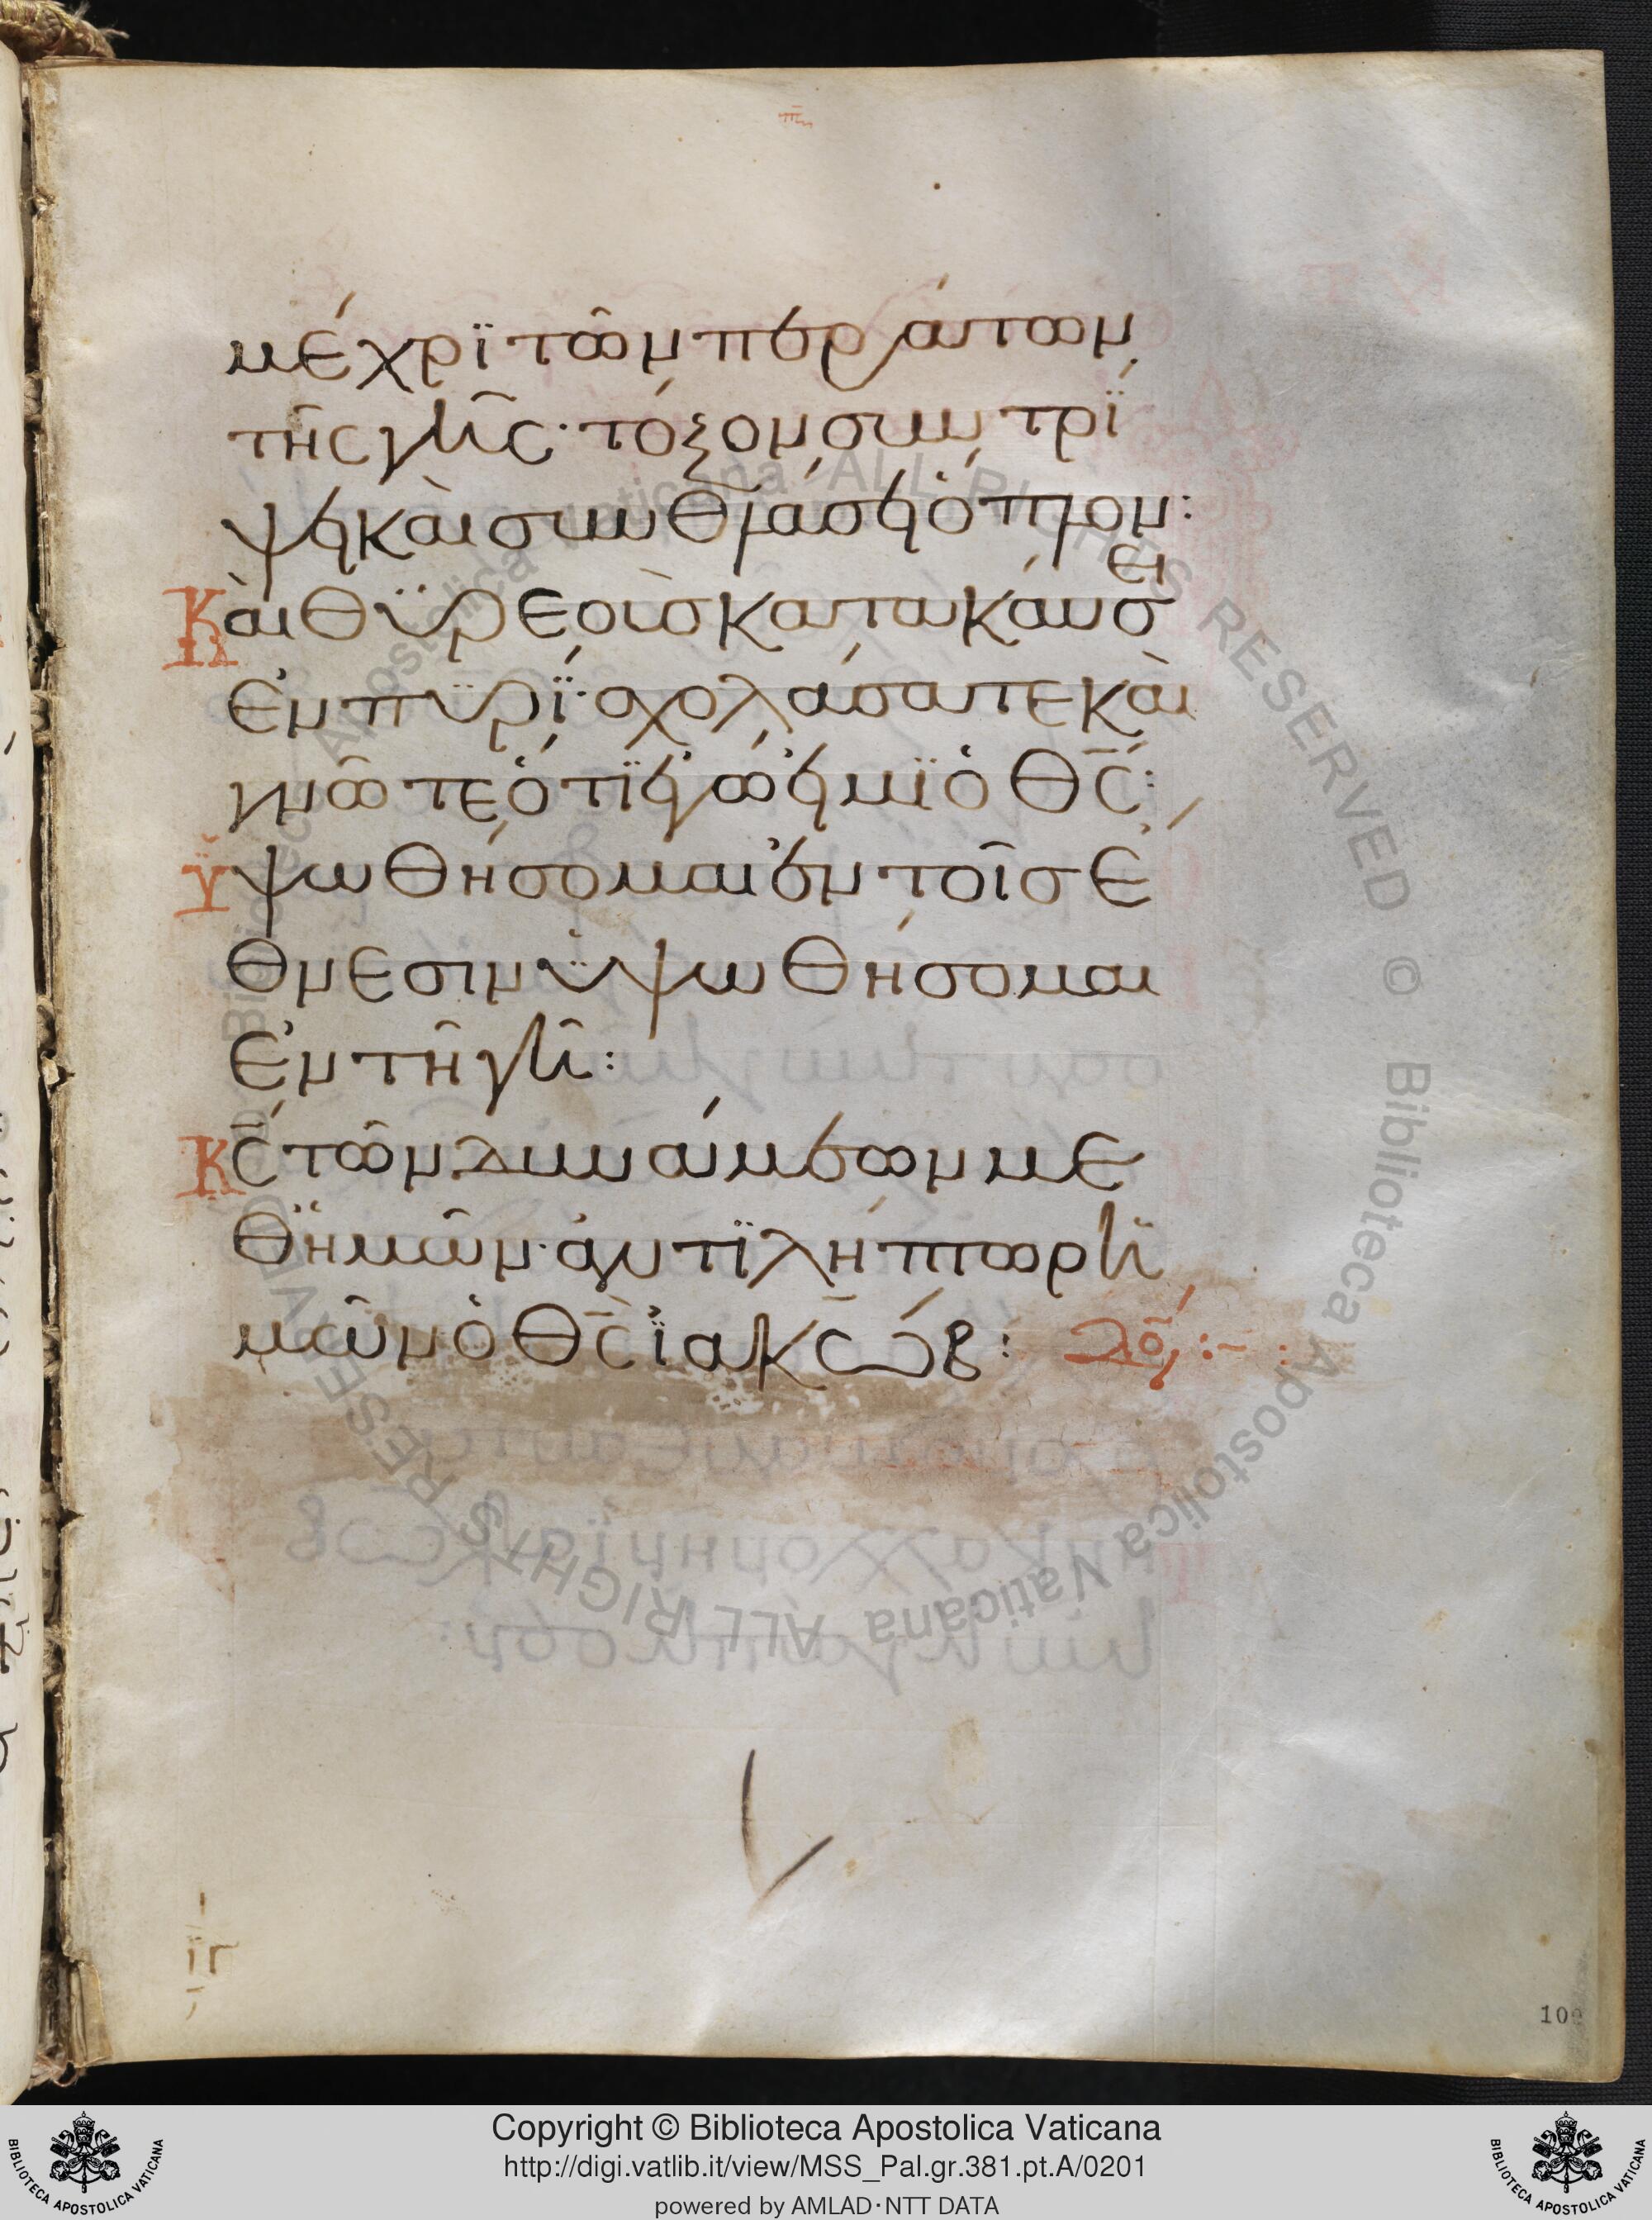 μέχρϊ τῶν περάτων
τῆς γῆς· τόξον συντρί
ψει καὶ συνθλάσει ὅπλον:
Καὶ θϋρεοὺς κατακαύσει
ἐν πϋρί· σχολάσατε καὶ
γνῶτε ὅτϊ ἐγώ εἰμϊ ὁ θ̅ς̅:
Ὑψωθήσομαι ἐν τοῖς ἔ
θνεσιν ὑψωθήσομαι
ἐν τῆ γῆ:
Κ̅ς̅ τῶν δυνάμεων με
θ' ἡμῶν· ἀντϊλήπτωρ ἡ
μῶν ὁ θ̅ς̅ ἰακώβ: δό̅ξ:-
ιγ
Copyright © Biblioteca Apostolica Vaticana
http://digi.vatlib.it/view/MSS_Pal.gr.381.pt.A/0201
powered by AMLAD·NTT DATA
BIBLIOTECA APOSTOLICA VATICANA
BIBLIOTECA APOSTOLICA VATICANA
Biblioteca Apostolica Vaticana ALL RIGHTS RESERVED ©
Biblioteca Apostolica Vaticana ALL RIGHTS RESERVED